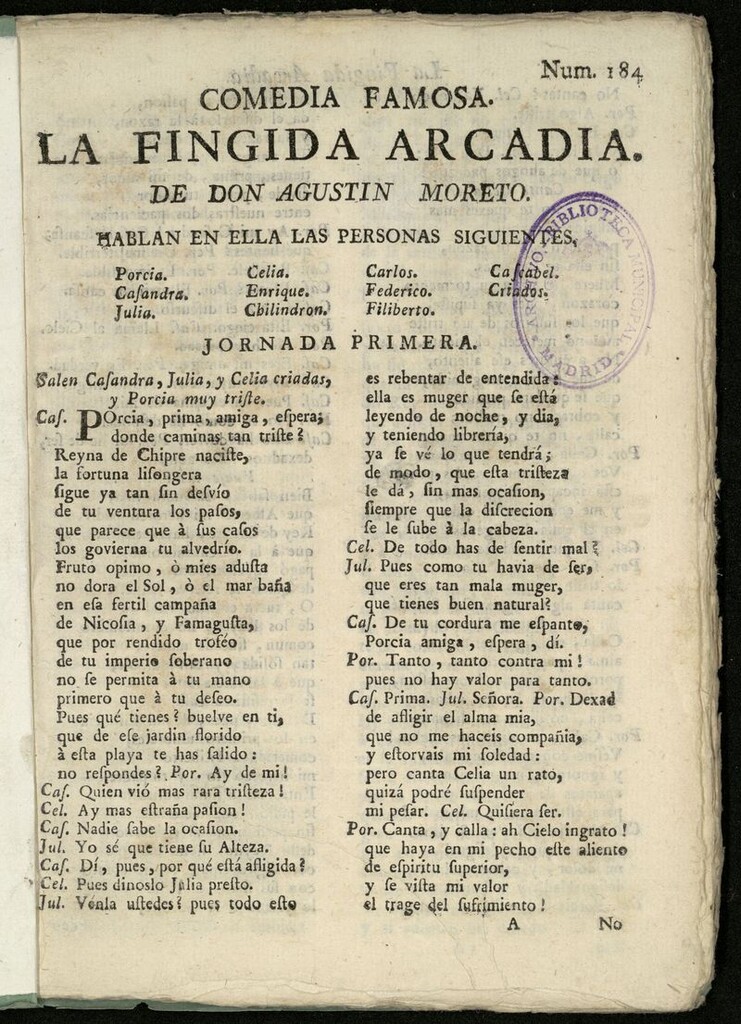 Num. 184
COMEDIA FAMOSA.
LA FINGIDA ARCADIA.
DE DON AGUSTIN MORETO.
HABLAN EN ELLA LAS PERSONAS SIGUIENTES.
Porcia. Celia. Carlos. Caſcabel.
Caſandra. Enrique. Federico. Criados.
Julia. Chilindron. Filiberto.
ARCHIVO BIBLIOTECA MUNICIPAL
MADRID
JORNADA PRIMERA.
Salen Caſandra, Julia, y Celia criadas,
y Porcia muy triſte.
Caſ. POrcia, prima, amiga, eſpera;
donde caminas tan triſte?
Reyna de Chipre naciſte,
la fortuna liſongera
ſigue ya tan ſin deſvío
de tu ventura los paſos,
que parece que à ſus caſos
los govierna tu alvedrío.
Fruto opimo, ò mies aduſta
no dora el Sol, ò el mar baña
en eſa fertil campaña
de Nicoſia, y Famaguſta,
que por rendido troféo
de tu imperio ſoberano
no ſe permita à tu mano
primero que à tu deſeo.
Pues qué tienes? buelve en ti,
que de eſe jardin florido
à eſta playa te has ſalido:
no reſpondes? Por. Ay de mi!
Caſ. Quien vió mas rara triſteza!
Cel. Ay mas eſtraña paſion!
Caſ. Nadie ſabe la ocaſion.
Jul. Yo sé que tiene ſu Alteza.
Caſ. Dí, pues, por qué eſtá afligida?
Cel. Pues dinoslo Julia preſto.
Jul. Vénla uſtedes? pues todo eſto
es rebentar de entendida:
ella es muger que ſe eſtá
leyendo de noche, y dia,
y teniendo librería,
ya ſe vé lo que tendrá;
de modo, que eſta triſteza
le dá, ſin mas ocaſion,
ſiempre que la diſcrecion
ſe le ſube à la cabeza.
Cel. De todo has de ſentir mal?
Jul. Pues como tu havia de ſer,
que eres tan mala muger,
que tienes buen natural?
Caſ. De tu cordura me eſpanto,
Porcia amiga, eſpera, dí.
Por. Tanto, tanto contra mi!
pues no hay valor para tanto.
Caſ. Prima. Jul. Señora. Por. Dexad
de afligir el alma mia,
que no me haceis compañia,
y eſtorvais mi ſoledad:
pero canta Celia un rato,
quizá podré ſuſpender
mi peſar. Cel. Quiſiera ſer.
Por. Canta, y calla: ah Cielo ingrato!
que haya en mi pecho eſte aliento
de eſpiritu ſuperior,
y ſe viſta mi valor
el trage del ſufrimiento!
A No